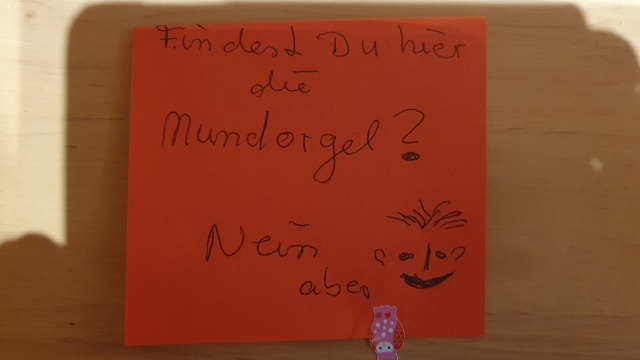 Findest Du hier
die
Mundorgel?
Nein
aber